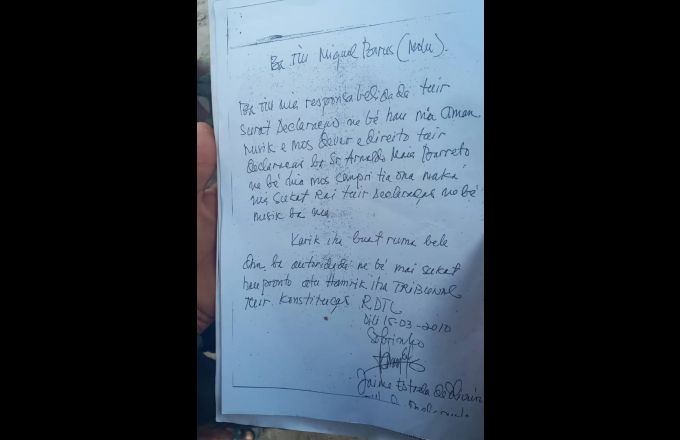 Ba Tiu Miguel Barros (Nolu).
Ba Tiu nia responsabelidade tuir
Surat Declaração ne bé hau nia aman
husik e mos dever e direito tuir
Declaracao ba Sr Arnaldo Maia Barreto
ne bé nia mos cumpri tia ona maka
nia sukat Rai tuir Declaração ne bé
husik ba nia
Karik iha buat ruma bele
ba autoridade ne bé mai sukat
hau pronto atu Hamrik iha TRIBUNAL
tuir Konstituçao RDTL
Dili 15-03-2010
Sobrinho
Jaime Estrela